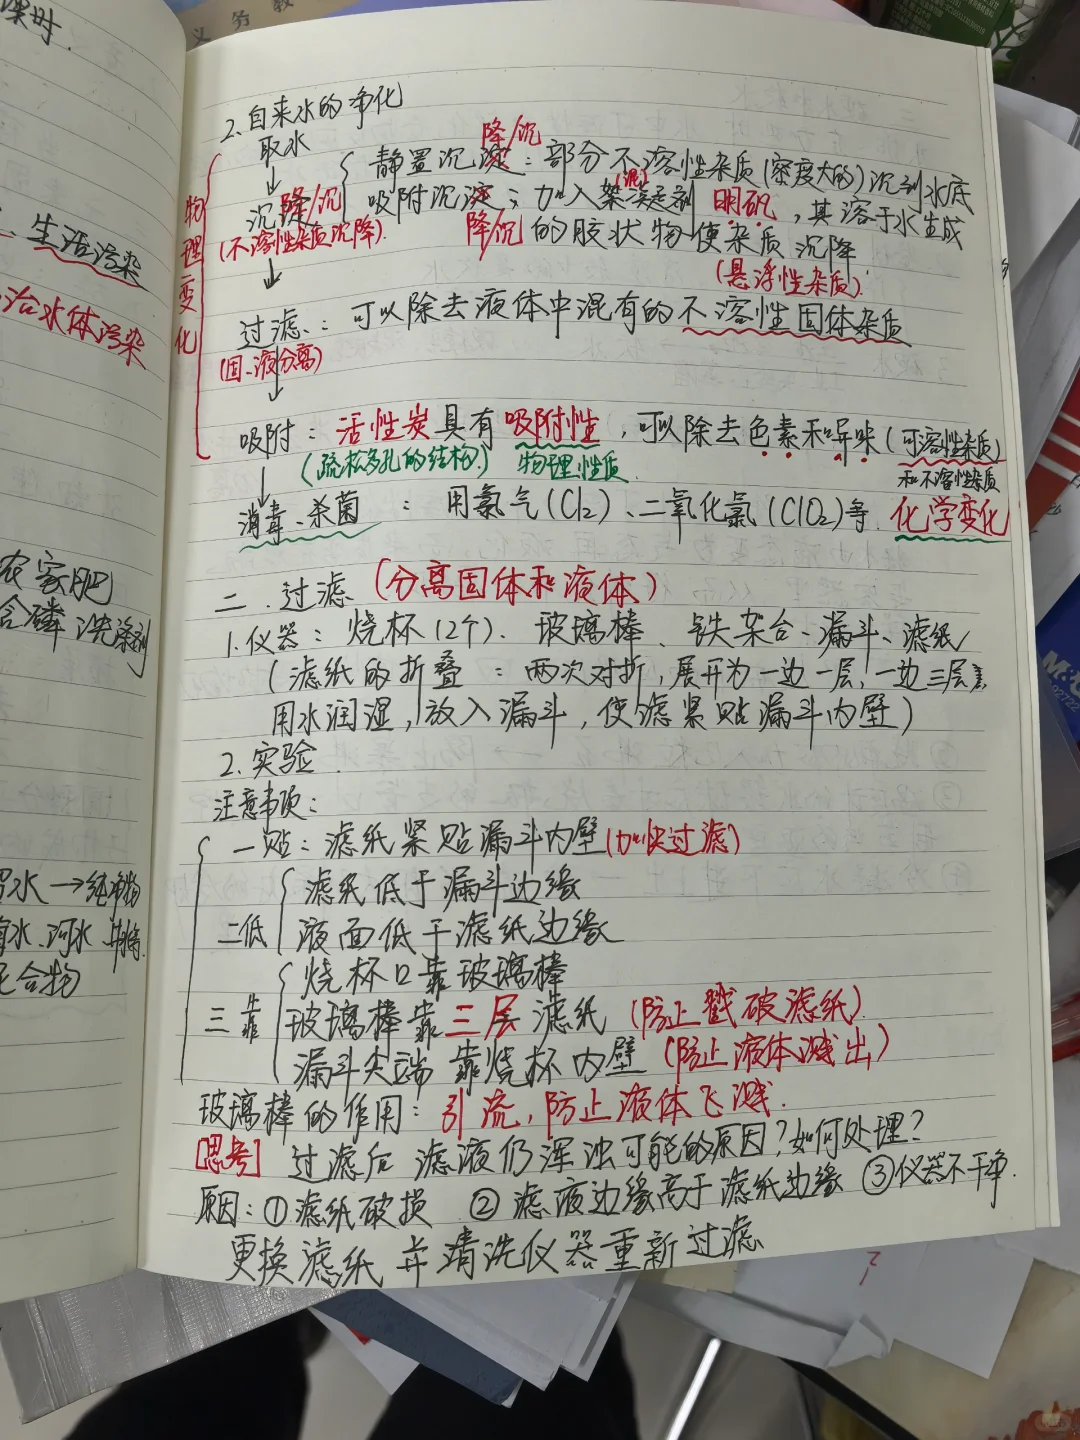 课时.
生活污染
治水体污染
农家肥
含磷洗涤剂
水→纯净物
水、河水
混合物
2.自来水的净化
取水
物理变化
沉降/沉
(不溶性杂质沉降).
降/沉
静置沉淀：部分不溶性杂质(密度大的)沉到水底
吸附沉淀：加入絮凝剂 明矾，其溶于水生成
(混)
降/沉 的胶状物使杂质沉降
(悬浮性杂质).
过滤：可以除去液体中混有的不溶性固体杂质
(固、液分离)
吸附：活性炭具有吸附性，可以除去色素和异味(可溶性杂质)
(疏松多孔的结构.) 物理性质 和不溶性杂质
消毒、杀菌：用氯气(Cl₂)、二氧化氯(ClO₂)等.化学变化
二.过滤(分离固体和液体)
1.仪器：烧杯(2个).玻璃棒、铁架台、漏斗、滤纸
(滤纸的折叠：两次对折,展开为一边一层,一边三层
用水润湿,放入漏斗,使滤紧贴漏斗内壁)
2.实验
注意事项：
一贴：滤纸紧贴漏斗内壁(加快过滤)
二低
滤纸低于漏斗边缘
液面低于滤纸边缘
三靠
烧杯口靠玻璃棒
玻璃棒靠三层滤纸(防止戳破滤纸).
漏斗尖端靠烧杯内壁(防止液体溅出)
玻璃棒的作用：引流,防止液体飞溅.
[思考] 过滤后滤液仍浑浊可能的原因?如何处理?
原因：①滤纸破损 ②滤液边缘高于滤纸边缘 ③仪器不干净.
更换滤纸并清洗仪器重新过滤